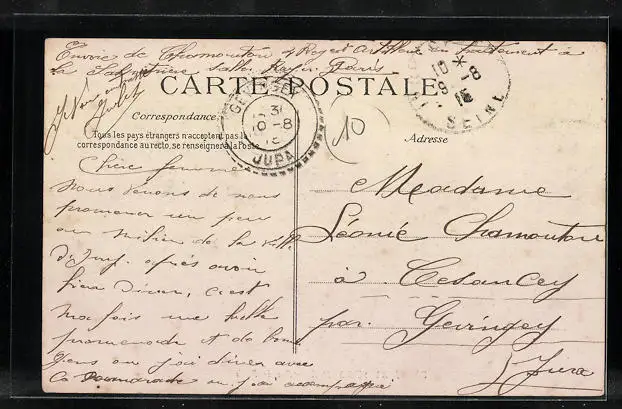 Envoi de Chamouton 4 Reg d'Artillerie en traitement à
la Salpêtrière salle Rayer Paris
CARTE POSTALE
Je t'en
Correspondance
Tous les pays étrangers n'acceptent pas la
correspondance au recto, se renseigner à la Poste
Adresse
GEVINGEY
31
10 -8
JURA
10 -8
15
SEINE
10
Chère femme
Nous venons de nous
promener un peu
au milieu de la ville
après avoir
bien diner, c'est
ma fois une belle
promenade et de bons
gens ou j'ai diner avec
Camarade ou j'ai accompagné
Madame
Léonie Chamouton
à Cesancey
par Gevingey
Jura